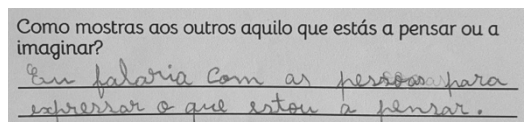 Como mostras aos outros aquilo que estás a pensar ou a
imaginar?
Eu falaria com as pessoas para
expressar o que estou a pensar.